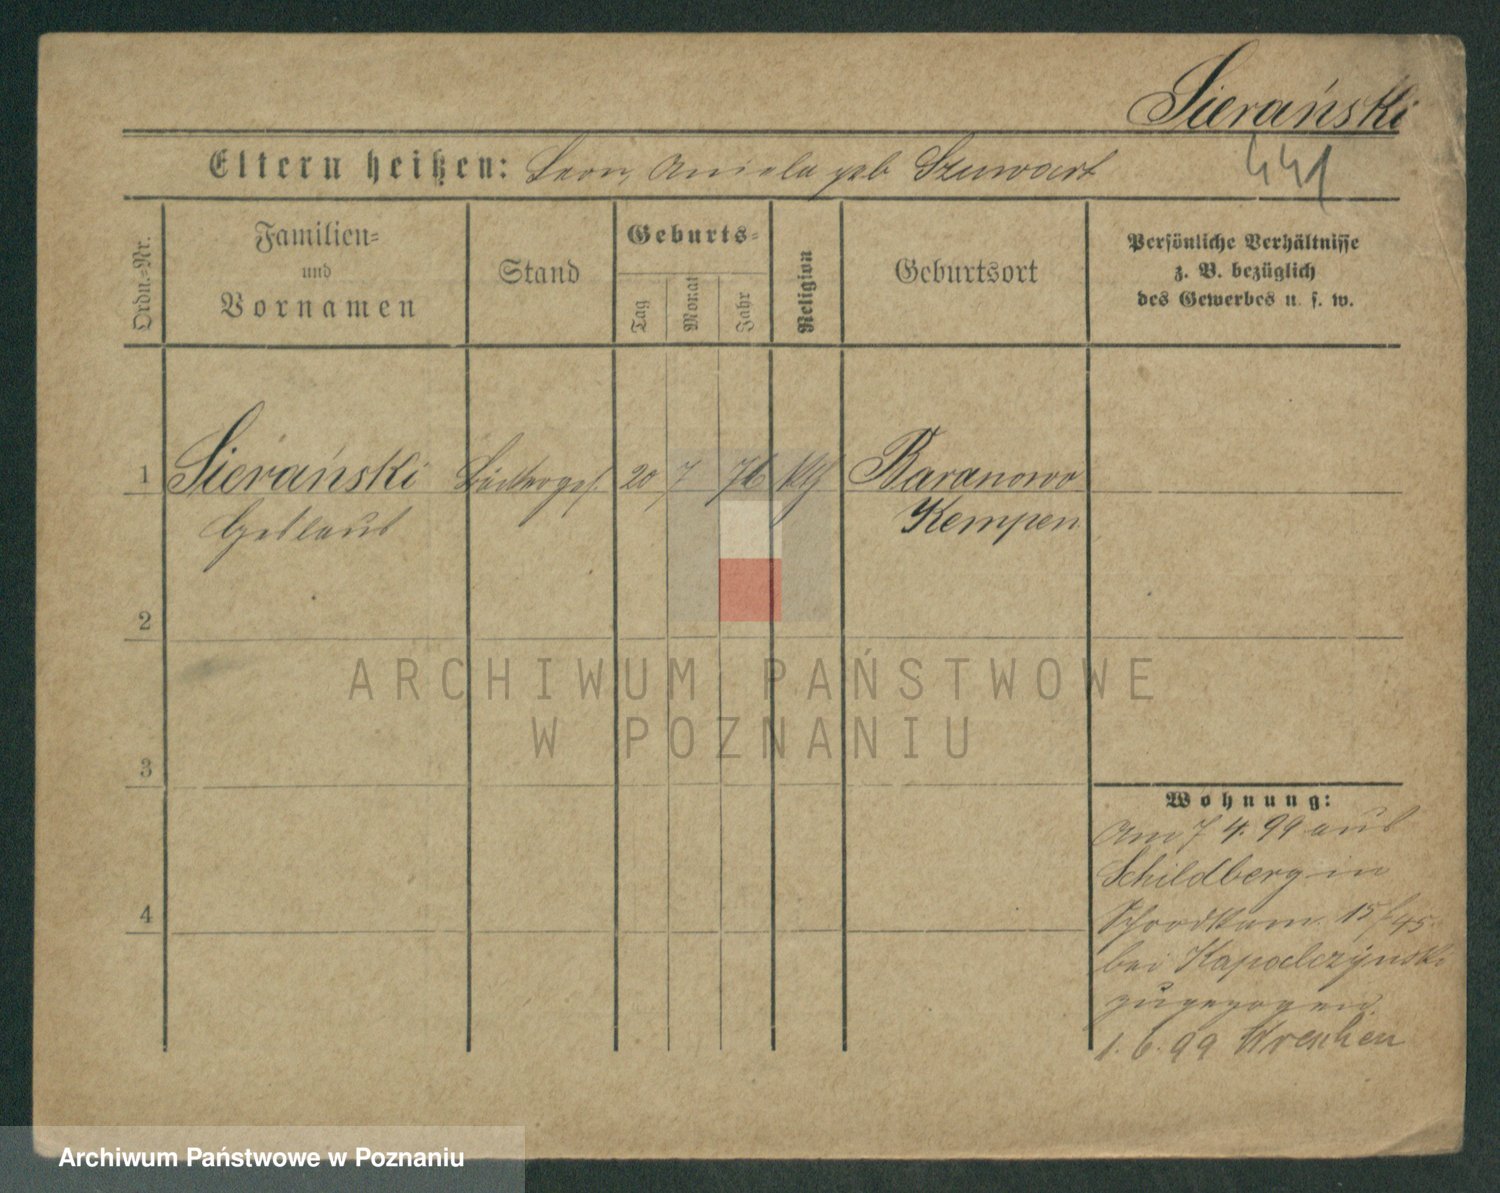 Sierański
Eltern heißen: Leon, Aniela geb Szuwart
441
Ordn.-Nr.
Familien-
und
Vornamen
Stand
Geburts-
Tag
Monat
Jahr
Religion
Geburtsort
Persönliche Verhältnisse
z. B. bezüglich
des Gewerbes u. s. w.
1 Sierański Bäckerges. 20 7 76 Baranowo
Kempen
2
3
4
Wohnung:
Am 7 4. 99 aus
Schildberg in
15/45
bei Kapodczynski
zugezogen.
1. 6. 99 Wreschen
ARCHIWUM PAŃSTWOWE
W POZNANIU
Archiwum Państwowe w Poznaniu